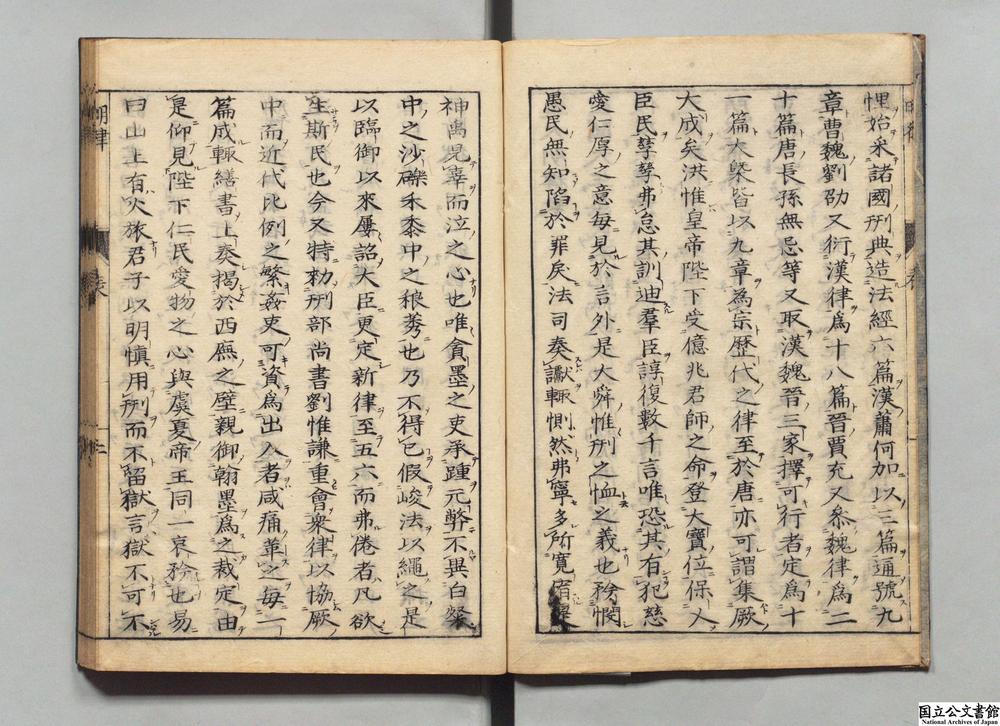 悝始采諸國刑典造法經六篇漢蕭何加以三篇通號九
章曹魏劉劭又衍漢律爲十八篇晉賈充又叅魏律爲二
十篇唐長孫無忌等又取漢魏晉三家擇可行者定爲十
一篇大槩皆以九章為宗歷代之律至於唐亦可謂集厥
大成矣洪惟皇帝陛下受億兆君師之命登大寶位保人
臣民孳孳弗怠其訓迪羣臣諄復數千言唯恐其有犯慈
愛仁厚之意每見於言外是大舜惟刑之恤之義也矜憫
愚民無知陷於罪戾法司奏讞輙惻然弗寧多所寬宥
神禹見辜而泣之心也唯貪墨之吏承踵元弊不異白粲
中之沙礫禾黍中之稂莠也乃不得已假峻法以繩之是
以臨御以來屢詔大臣更定新律至五六而弗倦者凡欲
生斯民也今又特勑刑部尚書劉惟謙重會衆律以協厥
中而近代比例之繁姦吏可資爲出入者咸痛革之每一
篇成輙繕書上奏揭於西廡之壁親御翰墨爲之裁定由
是仰見陛下仁民愛物之心與虞夏帝王同一哀矜也易
曰山上有火旅君子以明慎用刑而不留獄言獄不可不
明律
三
国立公文書館
National Archives of Japan